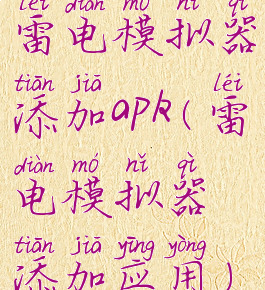 léi diàn mó nǐ qì
雷电模拟器
tiān jiā léi
添加apk(雷
diàn mó nǐ qì
电模拟器
tiān jiā yīng yòng
添加应用)